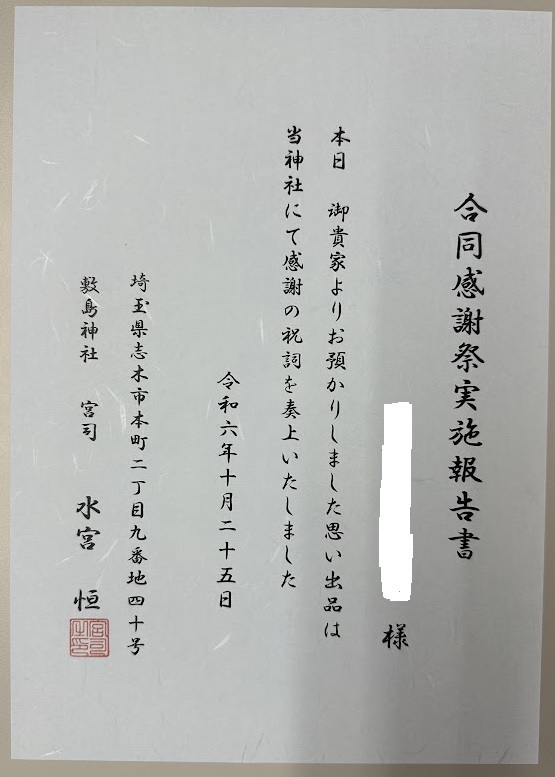 合同感謝祭実施報告書
様
本日 御貴家よりお預かりしました思い出品は
当神社にて感謝の祝詞を奏上いたしました
令和六年十月二十五日
埼玉県志木市本町二丁目九番地四十号
敷島神社 宮司 水宮 恒